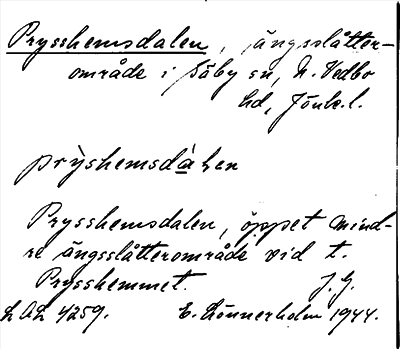 Prysshemsdalen, ängsslåtter-
område i Säby sn, N. Vedbo
hd, Jönk.l.
prỳshemsdàlen
Prysshemsdalen, öppet mind-
re ängsslåtterområde vid t.
Prysshemmet. J. G.
LAL 4259. E. Lönnerholm 1944.